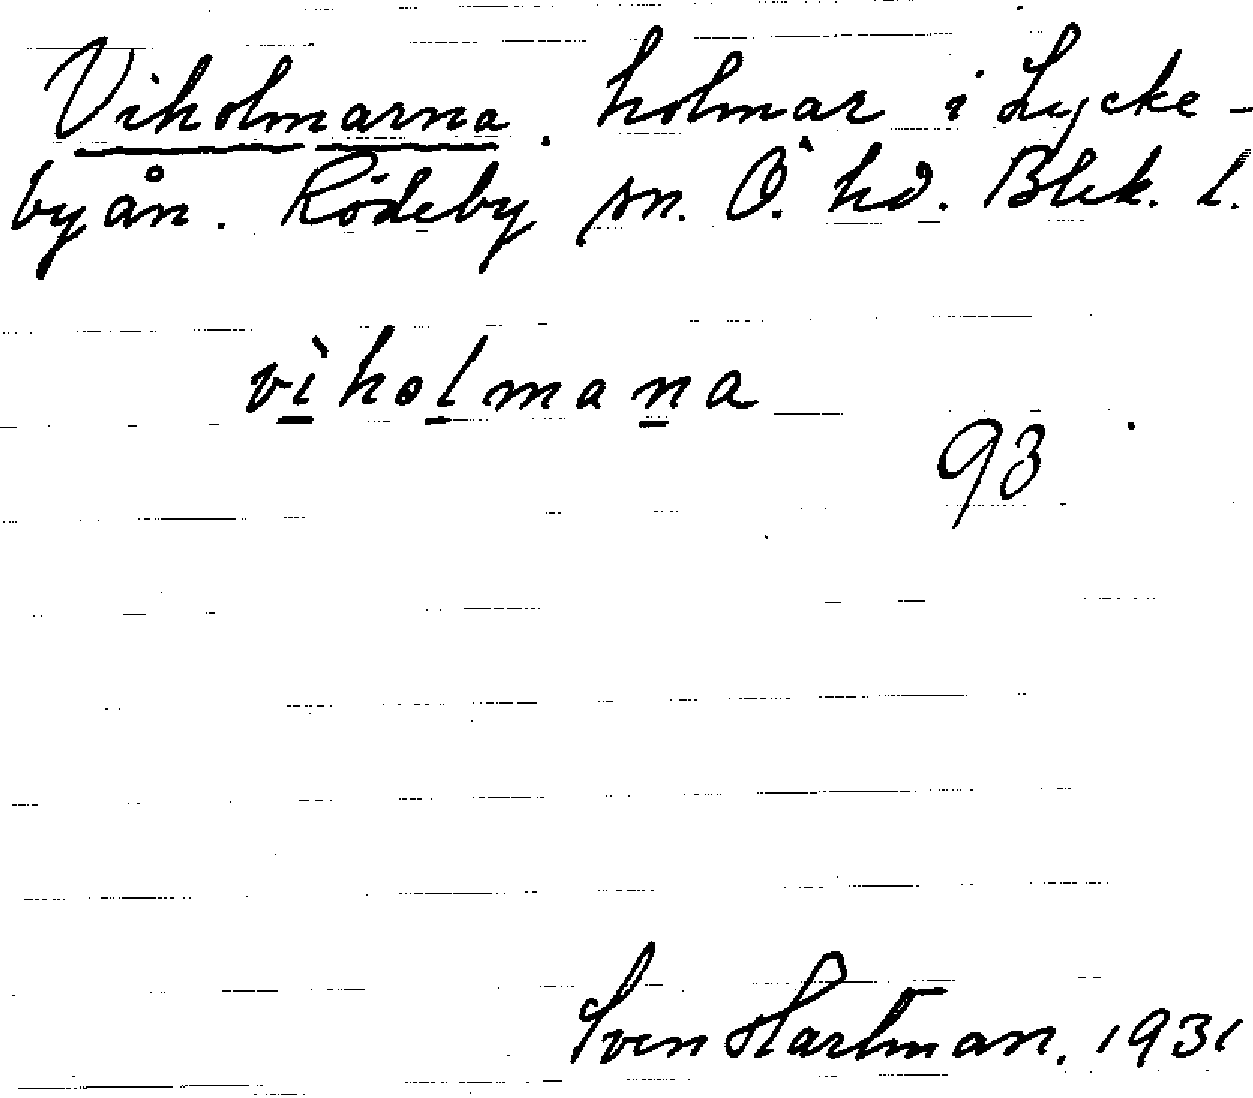 Viholmarna. holmar i Lycke-
byån. Rödeby sn. Ö. hd. Blek. l.
viholmana
93
Sven Hartman. 1931